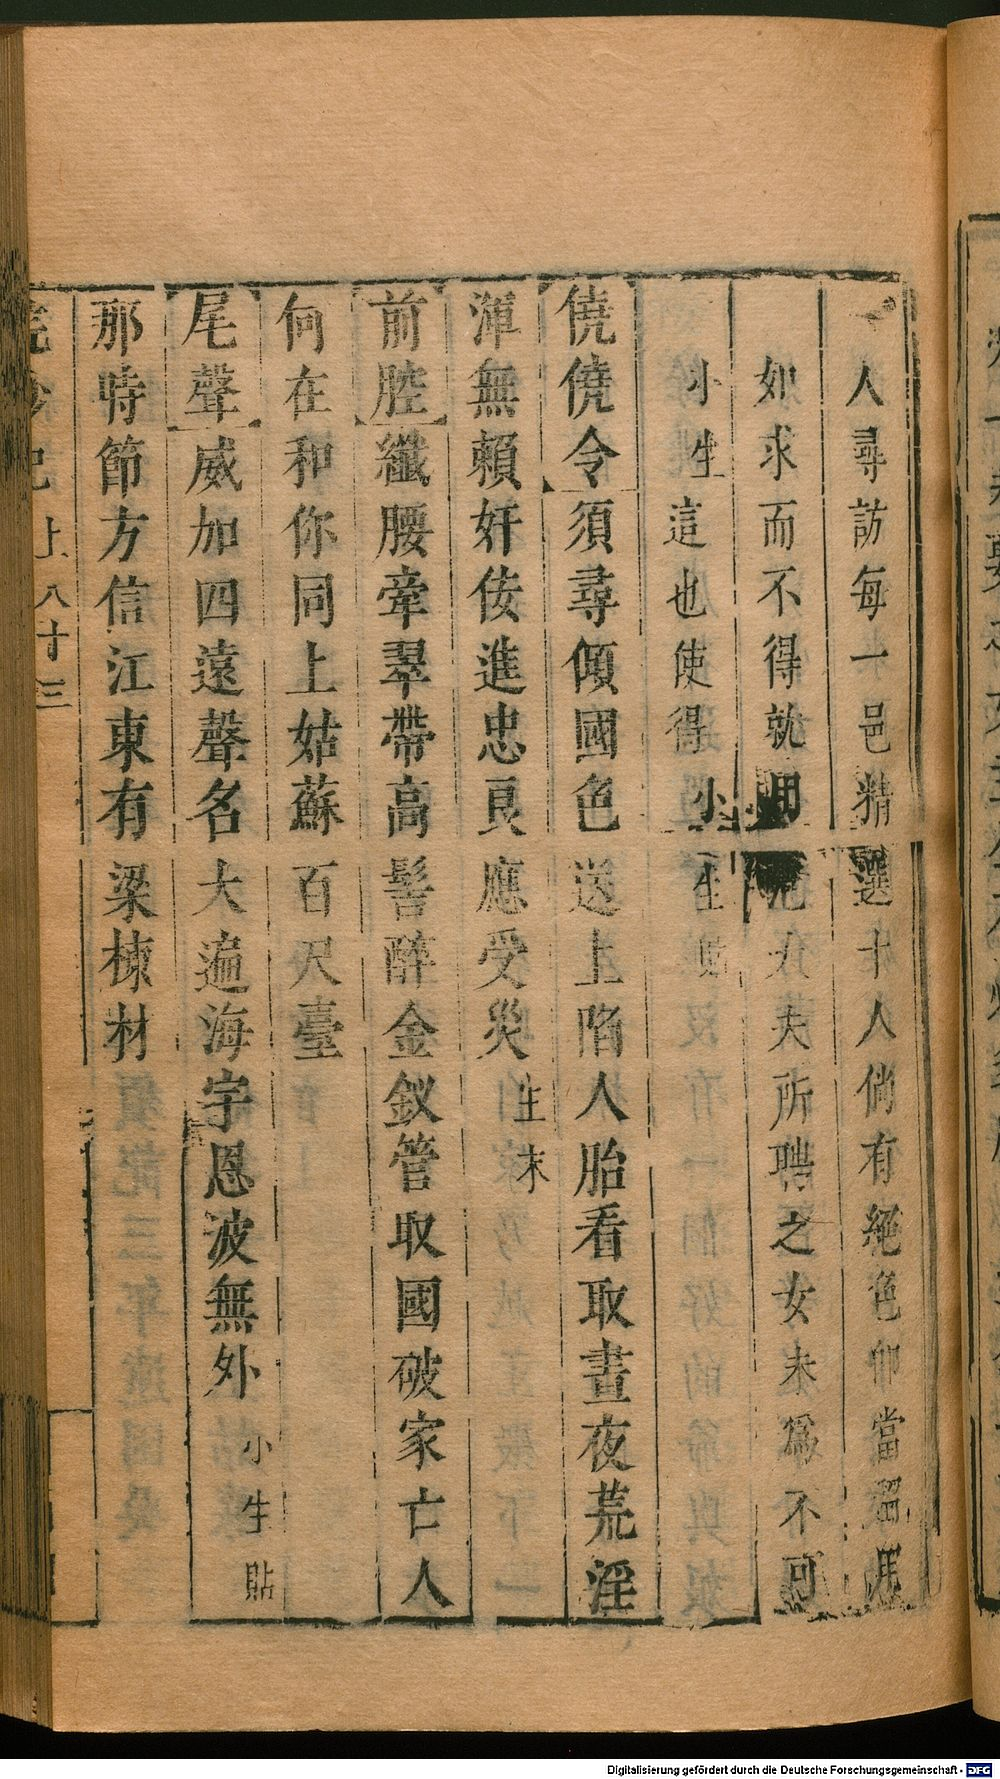 人尋訪每一邑精選十人倘有絕色卽當
如求而不得就用范大夫所聘之女未爲不可
小生
這也使得
小生
貼
僥僥令須尋傾國色送上陷人胎看取晝夜荒淫
渾無賴奸佞進忠良應受災
生末
前腔纖腰牽翠帶高髻醉金釵管取國破家亡人
何在和你同上姑蘇百尺臺
尾聲威加四遠聲名大遍海宇恩波無外
小生
貼
那時節方信江東有梁棟材
浣紗記 上 八十三
Digitalisierung gefördert durch die Deutsche Forschungsgemeinschaft - DFG